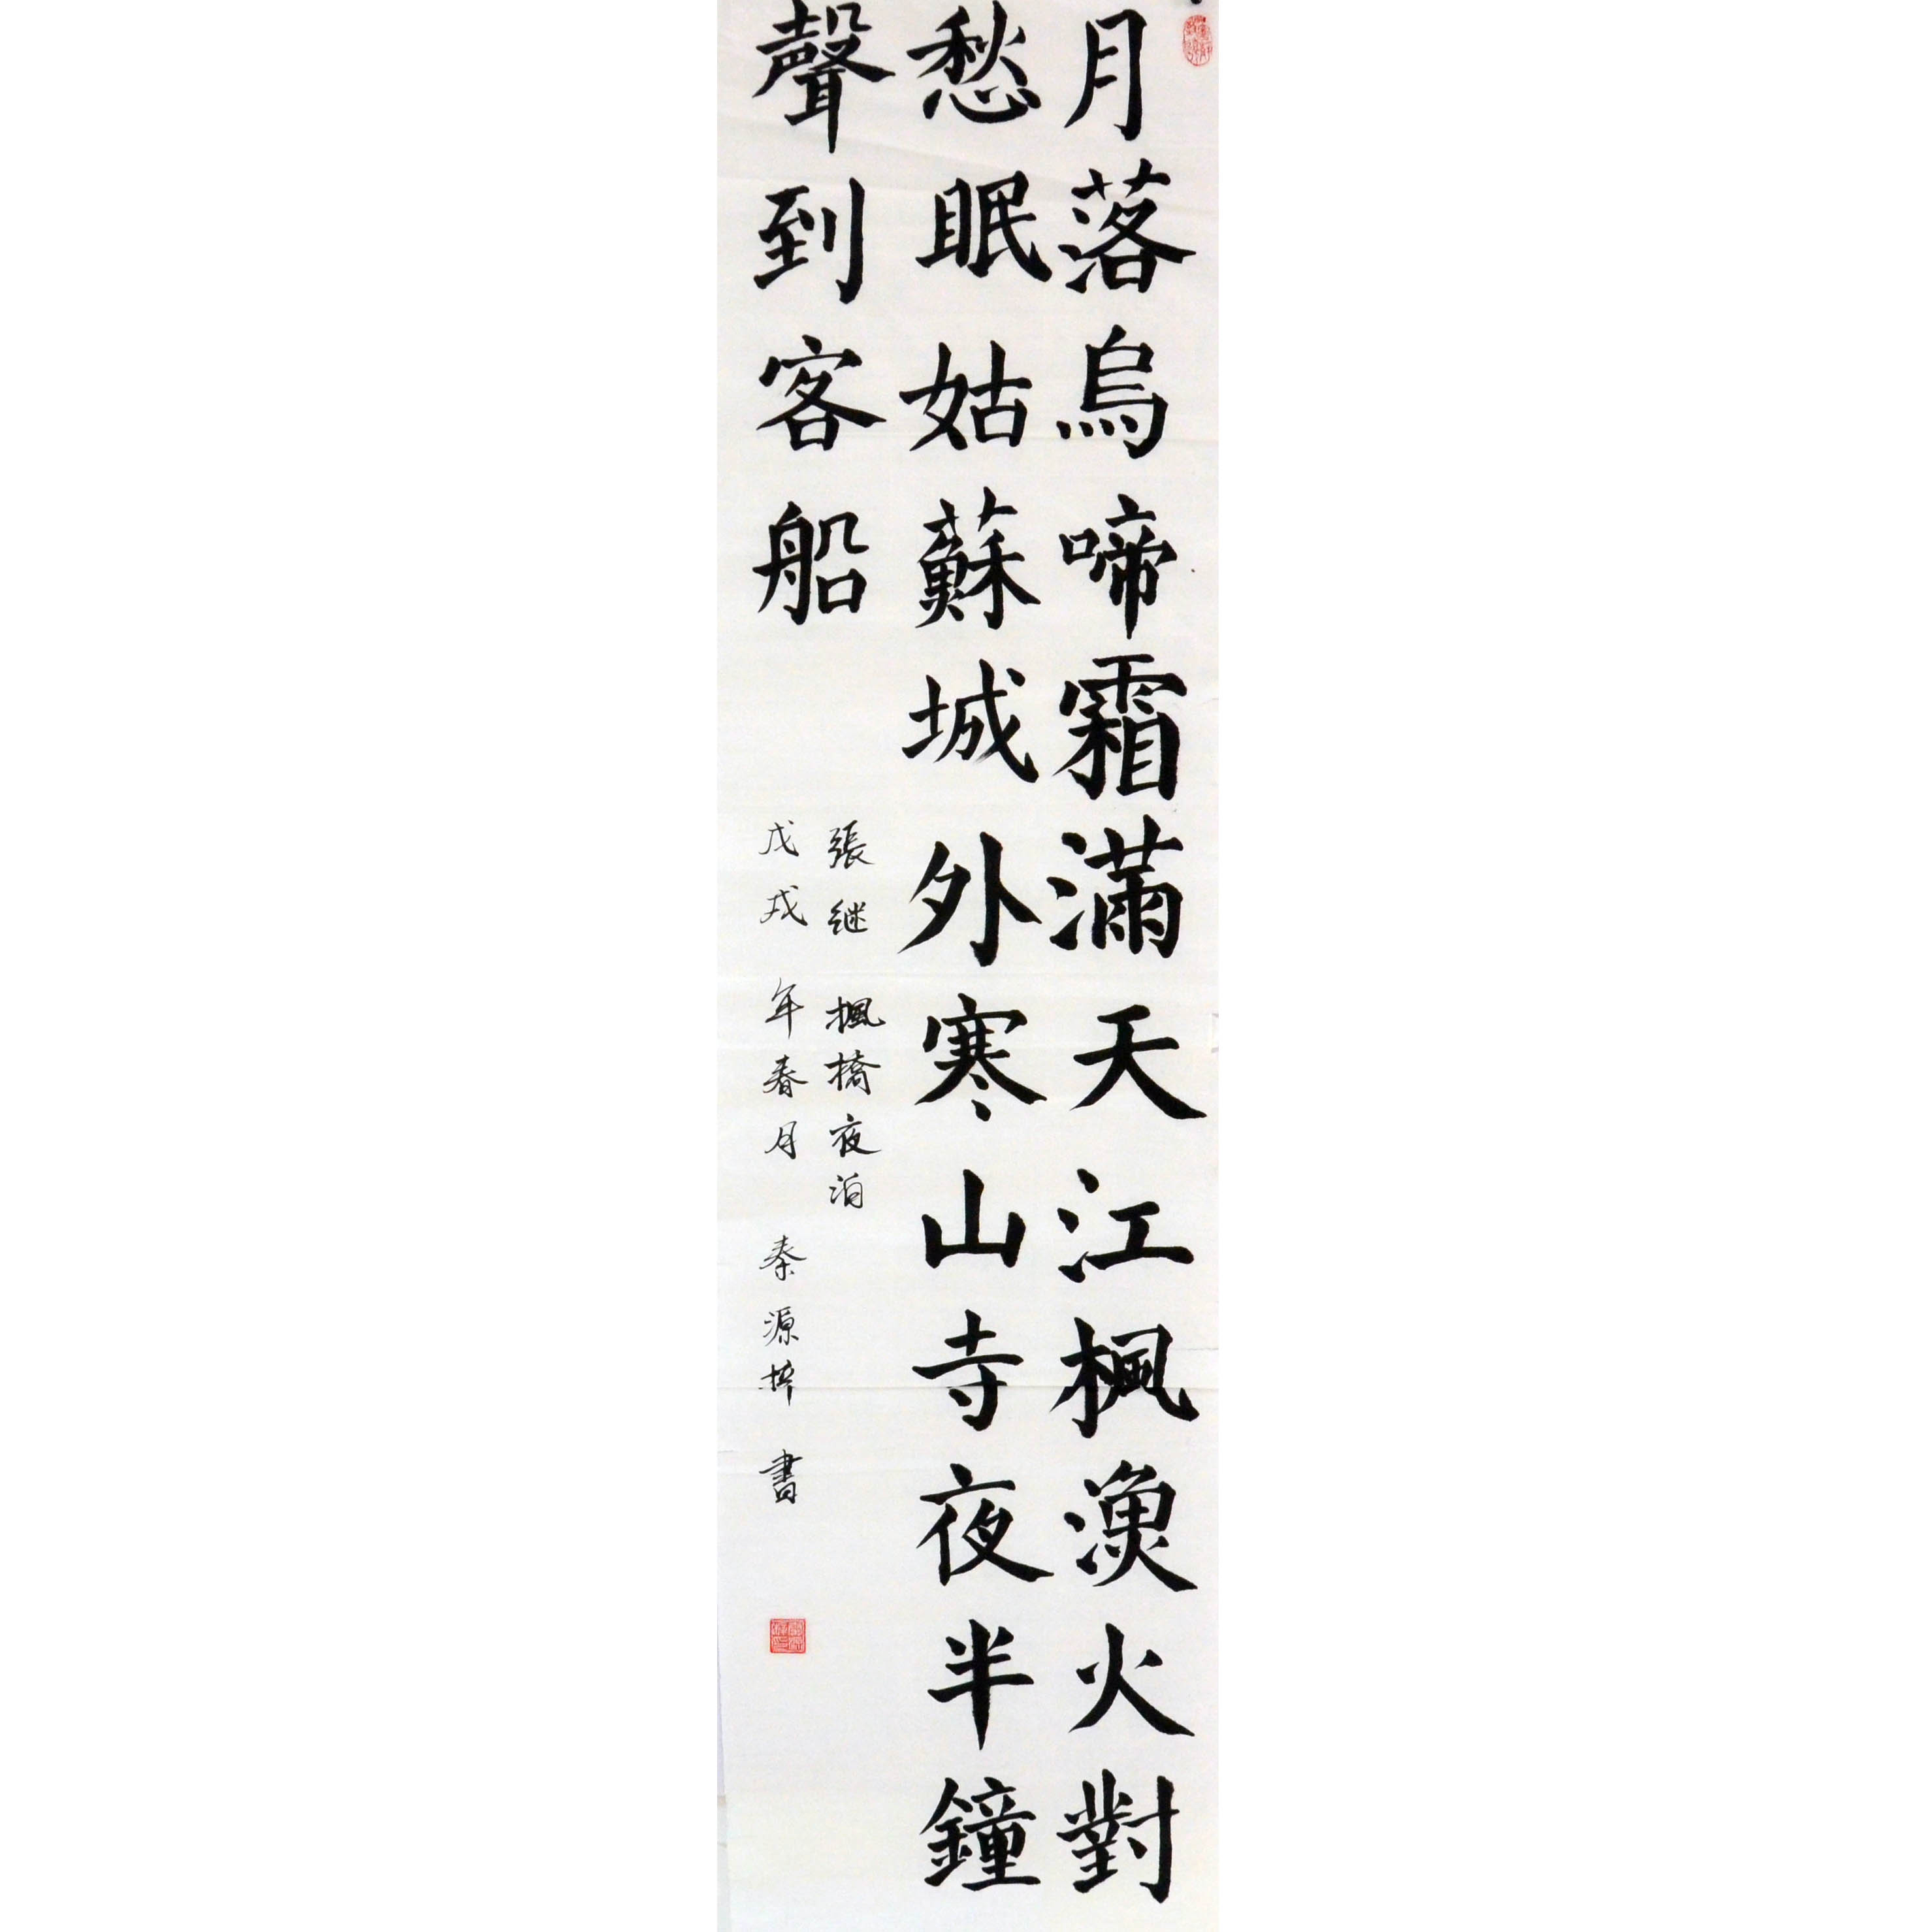 月落烏啼霜滿天江楓漁火對
愁眠姑蘇城外寒山寺夜半鐘
聲到客船
張继 楓橋夜泊
戊戌年春月 秦源梓 書